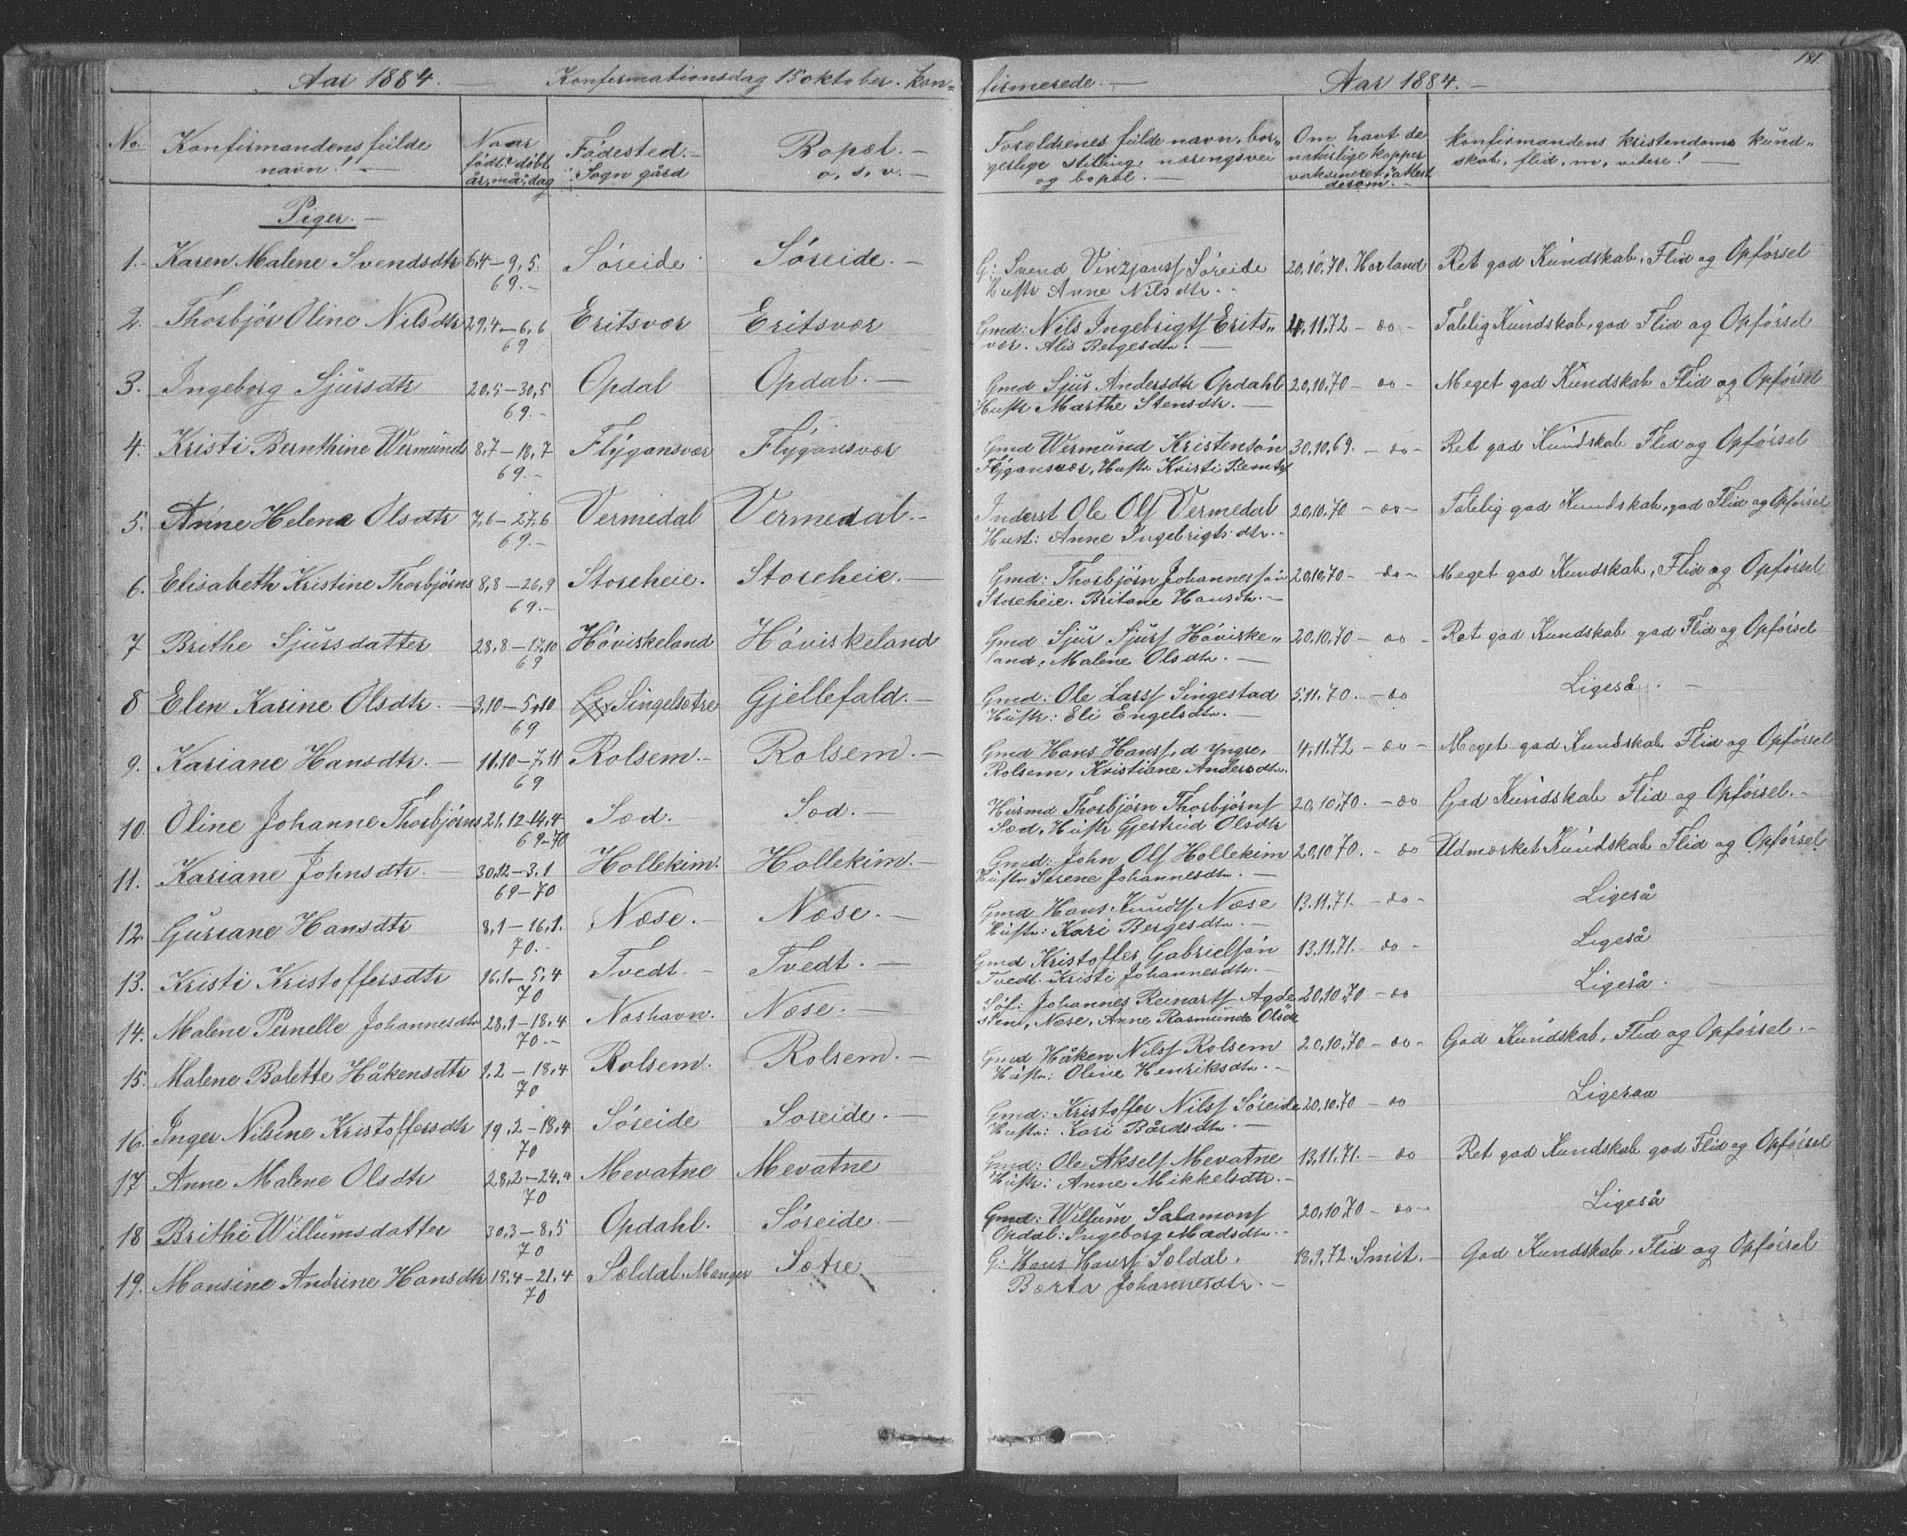 Aar 1884. — Konfirmationsdag 15 oktober. Kon=
No. Konfirmandens fulde navn! — Naar født: døbt, år, må: dag Fødested. — Sogn gård Bopæl. — o, s, v. —
Piger. —
1. Karen Malene Svendsdtr 6,4 — 9,5. 69. — Søreide Søreide. —
2. Thorbjør Oline Nilsdtr 29,4 — 6,6 69 Eritsvær Eritsvær
3. Ingeborg Sjursdtr 20,5 — 30,5 69. — Opdal Opdal. —
4. Kristi Bernthine Wermunds 8,7 — 18,7 69. — Flygansvær Flygansvær
5. Anne Helene Olsdtr 7,6 — 27,6 69. — Vermedal Vermedal. —
6. Elisabeth Kristine Thorbjørns 8,8 — 26,9 69. — Storeheie. Storeheie. —
7 Brithe Sjursdatter 28,8 — 17,10 69 Høviskeland Høviskeland
8 Elen Karine Olsdtr. — 3,10 — 5,10 69 Singelsætre Gjellefald. —
9. Kariane Hansdtr. — 11,10 — 7,11 69 Rolsem. — Rolsem. —
10. Oline Johanne Thorbjørns 21,12 — 14,4 69—70 Sæd. Sæd. —
11. Kariane Johnsdtr. — 30,12 — 3,1 69—70 Hollekim. Hollekim. —
12. Guriane Hansdtr 8,1 — 16,1. 70. — Næse. — Næse. —
13. Kristi Kristoffersdtr 16,1 — 5,4 70 Tvedt. — Tvedt. —
14. Malene Pernelle Johannesdtr 28,1 — 18,4 70. — Næshavn. Næse. —
15. Malene Bolette Håkensdtr 1,2 — 18,4 70 Rolsem. Rolsem. —
16. Inger Nilsine Kristoffersdtr 19,2 — 18,4 70 Søreide Soreide. —
17 Anne Malene Olsdtr 28,2 — 24,4 70 Mevatne Mevatne
18 Brithe Willumsdatter 30,3 — 8,5 70 Opdahl. Søreide. —
19. Monsine Andrine Hansdtr 15,4 — 21,4 70 Sældal. Manger Sætre
firmerede. — Aar 1884. — 181
Foreldrenes fulde navn, bor= gerlige stilling, næringsvei og bopæl. — Om havt de naturlige kopper vaksineret, attest desom. — Konfirmandens kristendoms kund= skab, flid, m, videre! —
G: Svend Vinzjansf Søreide 20,10,70. Horland Ret god Kundskab, Flid og Opførsel
Hustr Anne Nilsdtr. -
Gmd: Nils Ingebrigtsf Erits= 4,11,72 — do — Talelig Kundskab, god Flid og Opførsel
vær. Alis Bergesdtr. —
Gmd Sjur Andersdtr Opdahl 20,10,70 — do — Meget god Kundskab Flid og Opførsel
Hustr Marthe Stensdtr. —
Gmd Wermund Kristensøn 30,10,69. — do — Ret god Kundskab Flid og Opførsel
Flygansvær, Hustr Kristi
Inderst Ole Olsf Vermedal 20,10,70 — do — Talelig god Kundskab, god Flid og Opførsel
Hust: Anne Ingebrigtsdtr. —
Gmd: Thorbjørn Johannessøn 20,10,70 — do — Meget god Kundskab, Flid og Opførsel
Storeheie. Britane Hansdtr. —
Gmd Sjur Sjursf Høviske= 20,10,70 — do — Ret god Kundskab god Flid og Opførsel
land, Malene Olsdtr. —
Gmd: Ole Larsf Singestad 5,11,70. — do Ligeså. —
Hustr: Eli Engelsdtr. —
Gmd Hans Hansf, d yngre, 4,11,72 — do — Meget god Kundskab Flid og Opførsel
Rolsem, Kristiane Andersdtr.
Husmd Thorbjørn Thorbjørnsf 20,10,70. — do God Kundskab Flid og Opførsel. —
Sæd, Hustr Gjertrud Olsdtr
Gmd: John Olsf Hollekim 20,10,70. — do Udmærket Kundskab Flid og Opførsel.
Hustr Serene Johannesdtr. —
Gmd Hans Knudsf Næse 13,11,71. — do — Ligeså
Hustr: Kari Bergesdtr. —
Gmd Kristoffer Gabrielsøn 13,11,71. — do — Ligeså
Tvedt. Kristi Johannesdtr. —
Søf: Johannes Reinartsf Agde 20,10,70 — do Ligeså.
sten, Næse, Anne Rasmunds Olsdtr
Gmd Håken Nilsf Rolsem 20,10,70 — do — God Kundskab, Flid og Opførsel. —
Hustr: Oline Henriksdtr. —
Gmd: Kristoffer Nilsf Søreide 20,10,70 — do Ligesaa
Hustr: Kari Bårdsdtr. —
Gmd: Ole Akselsf Mevatne 13,11,71. — do Ret god Kundskab god Flid og Opførsel
Hustr: Anne Mikkelsdtr. —
Gmd: Willum Salamonsf 20,10,70 — do — Ligeså
Opdal: Ingeborg Madsdtr. -
G: Hans Hansf Sældal. 18,9,72. Smit. — God Kundskab, Flid og Opførsel
Børta Johannesdtr. —